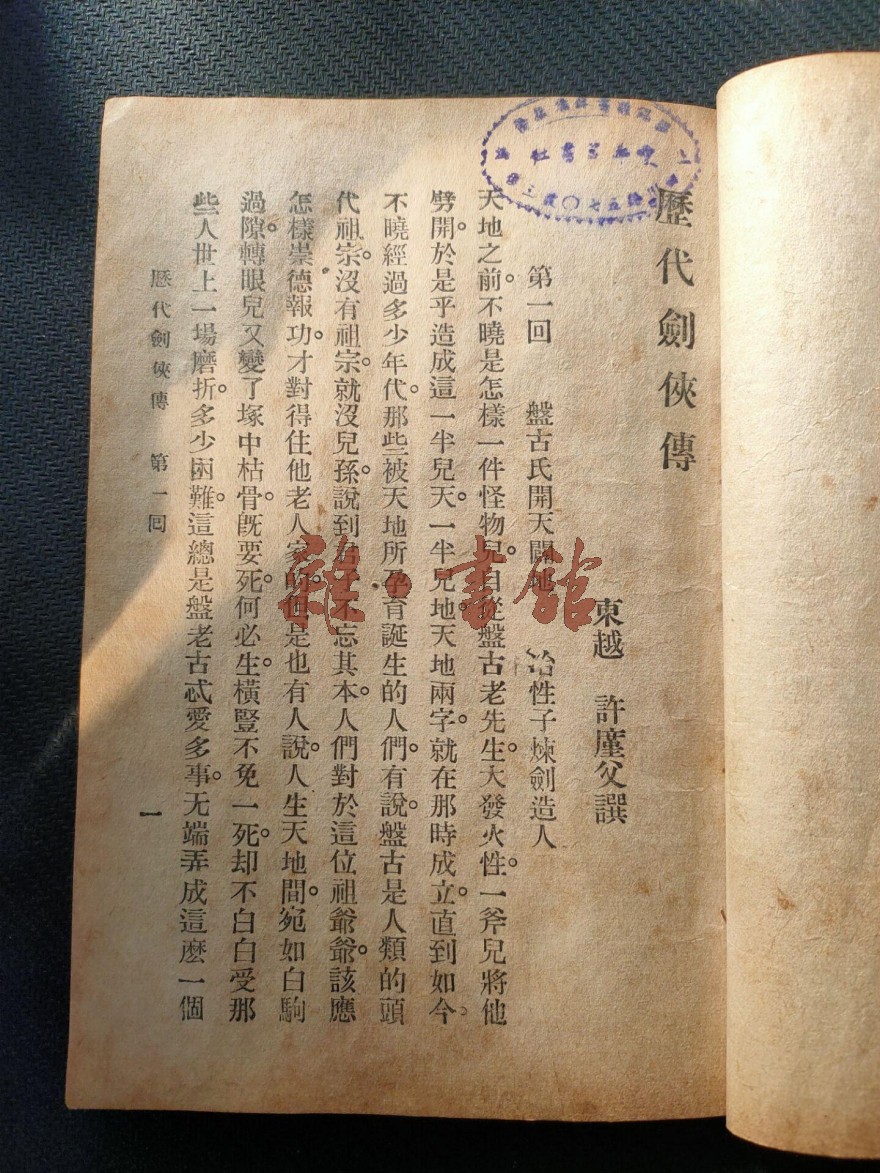 歷代劍俠傳
東越 許厪父譔
第一回 盤古氏開天闢地 冶性子煉劍造人
天地之前。不曉是怎樣一件怪物兒。自從盤古老先生。大發火性。一斧兒將他
劈開。於是乎造成這一半兒天。一半兒地。天地兩字。就在那時成立。直到如今。
不曉經過多少年代。那些被天地所孕育誕生的人們。有說。盤古是人類的頭
代祖宗。沒有祖宗。就沒兒孫。說到君子不忘其本。人們對於這位祖爺爺。該應
怎樣崇德報功。才對得住他老人家的。但是也有人說。人生天地間。宛如白駒
過隙。轉眼兒又變了塚中枯骨。旣要死。何必生。橫豎不免一死。却不白白受那
些人世上一場磨折。多少困難。這總是盤老古忒愛多事。无端弄成這麽一個
歷代劍俠傳 第一回
一
雜·書館